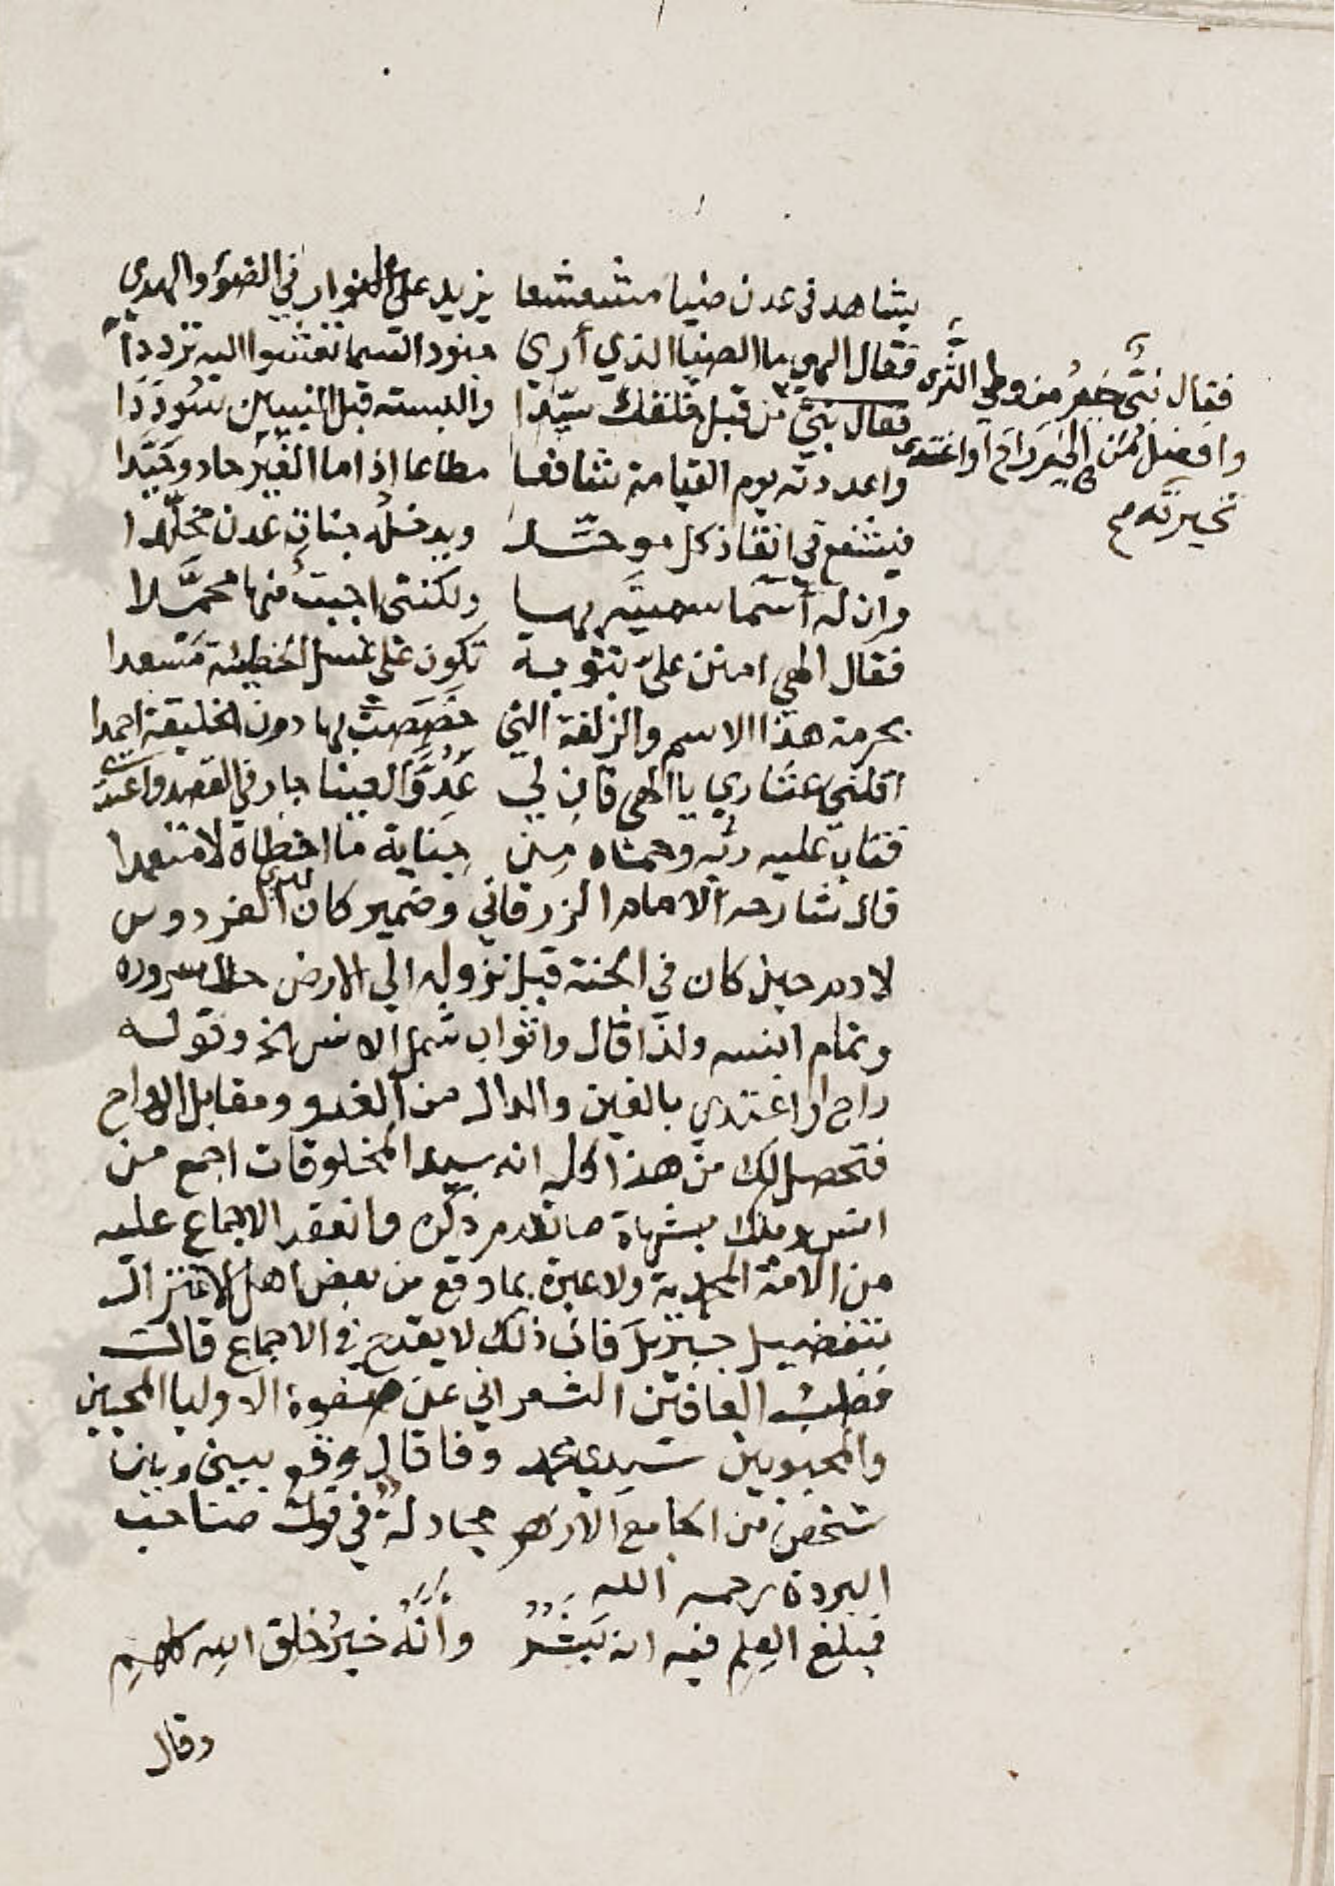 يشاهد في عدن ضيا مشعشعا يزيد على الانوار في الضوء والهدى
فقال الهي ما الضيا الذي أرى جنود السما تعشوا اليه ترددا
فقال نبي خير من وطي الثرى
وافضل من في الخير راح او اغتدى
تخيرته م
من قبل خلقك سيدا والبسته قبل النبيين سوددا
واعددته يوم القيامة شافعا مطاعا اذا ما الغير حاد وحيدا
فيشفع في انقاذ كل موحد ويدخله جنات عدن مخلدا
وان له أسما سميته بها ولكنني احببت منها محمدا
فقال الهي امنن علي بتوبة تكون على غسل الخطيئة مسعدا
بحرمة هذا الاسم والزلفة التي خصصت بها دون الخليقة احمدا
اقلني عثاري يا الهي فان لي عدوا لعينا جار في القصد واعتدى
فتاب عليه ربه وحماه من جناية ما اخطاه لا متعمدا
قال شارحه الامام الزرقاني وضمير كان لدى الفردوس
لادم حين كان في الجنة قبل نزوله الى الارض حال سروره
وتمام انسه ولذا قال واثواب شمل الانس الخ وقوله
راح او اغتدى بالغين والدال من الغدو ومقابل الرواح
فتحصل لك من هذا كله انه سيد المخلوقات اجمع من
انس وملك بشهادة ما تقدم ذكره وانعقد الاجماع عليه
من الامة المحمدية ولا عبرة بما وقع من بعض اهل الاعتزال
بتفضيل جبريل فان ذلك لا يقدح في الاجماع قال
قطب العارفين الشعراني عن صفوة الاوليا المحبين
والمحبوبين سيدي محمد وفا قال وقع بيني وبين
شخص من الجامع الازهر مجادلة في قول صاحب
البردة رحمه الله
فمبلغ العلم فيه انه بشر وأنه خير خلق الله كلهم
وقال